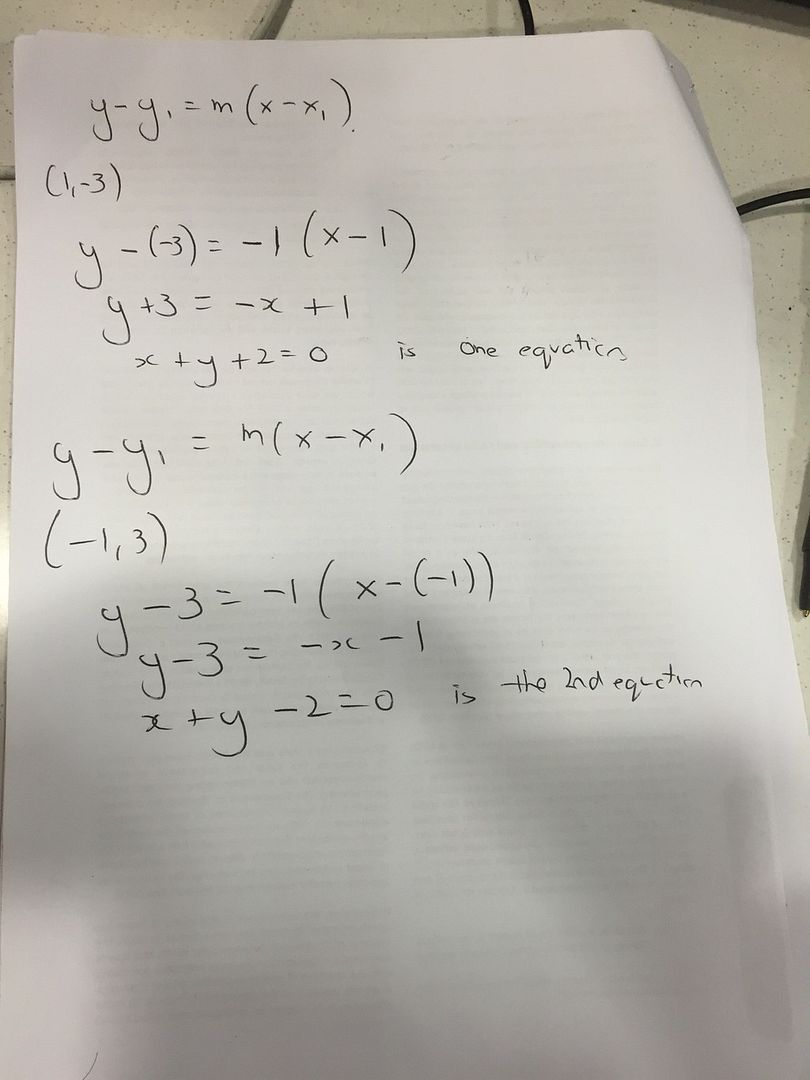 y-y₁ = m(x-x₁)
(1,-3)
y-(-3) = -1(x-1)
y+3 = -x+1
x+y+2=0 is one equation
y-y₁ = m(x-x₁)
(-1,3)
y-3 = -1(x-(-1))
y-3 = -x-1
x+y-2=0 is the 2nd equation